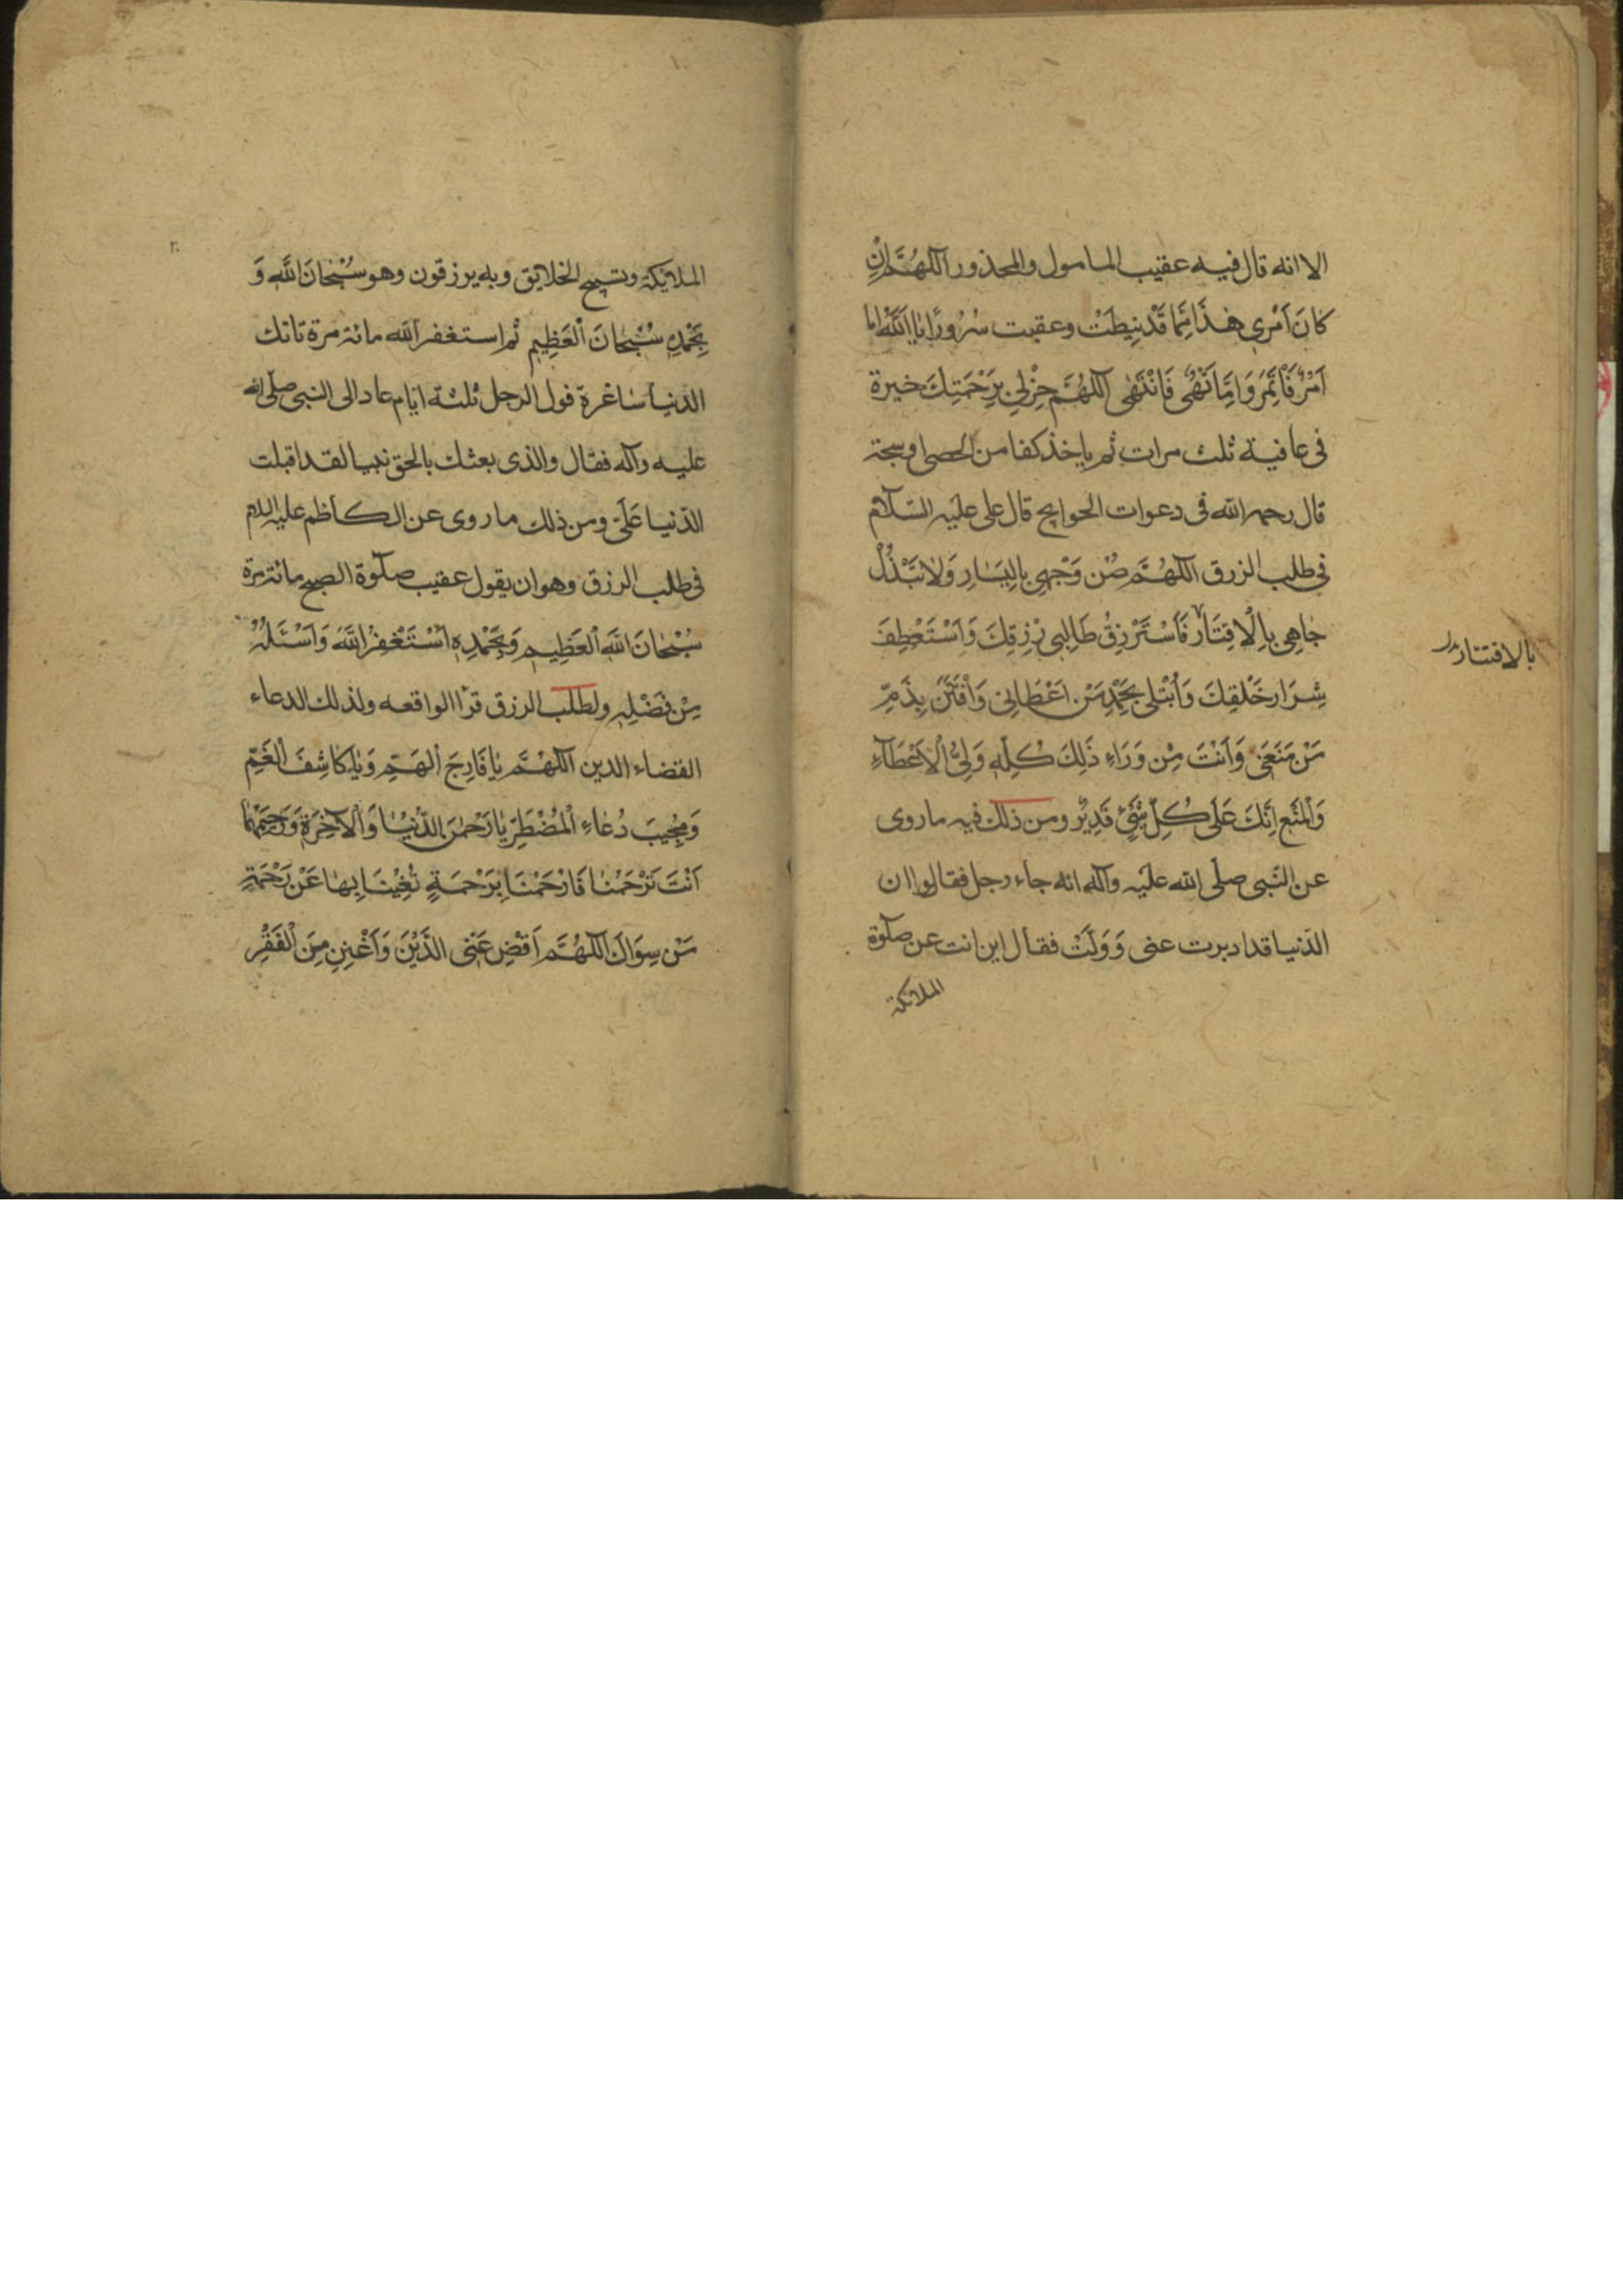 الا انه قال فيه عقيب المامول والمحذور اَللّهُمَّ اِنْ
كانَ اَمْري هذَا مِمّا قَدْ نيطَتْ وعقبت سُرُورًا يا اَللّهُ اِما
اَمْرٌ فَأْتَمِرُ وَاِمّا نَهْيٌ فَاَنْتَهي اَللّهُمَّ خِرْلي بِرَحْمَتِكَ خيرة
في عافية ثلث مرات ثم ياخذ كفا من الحصى او سبحة
قال رحمه الله في دعوات الحوايج قال علي عليه السّلام
في طلب الزرق اَللّهُمَّ صُنْ وَجْهي بِالْيَسارِ وَلا تَبْذُلْ
جاهي بِالْاِقِتارِ فَاَسْتَرْزِقُ طالِبي رِزِقِكَ وَاَسْتَعْطِفَ
شِرارِ خَلْقِكَ وَاُبْتَلى بِحَمْدِ مَنْ اَعْطاني وَاُفْتَتَنَ بِذَمِّ
مَنْ مَنَعَني وَاَنْتَ مِنْ وَراءِ ذلِكَ كُلِّهِ وَلِيُّ الْاَعْطآءِ
وَالْمَنْعِ اِنَّكَ عَلى كُلِّ شَيْءٍ قَديرٌ ومن ذلك فيه ما روى
عن النّبي صلى الله عليه وآله انه جاء رجل فقالوا ان
الدّنيا قد ادبرت عني وَوَلَّتْ فقال اين انت عن صلوة
الملائكة
بالافتتار
الملائكة وتسبيح الخلايق وبه يرزقون وهو سُبْحانَ اللهِ وَ
بِحَمْدِهِ سُبْحانَ الْعَظيمِ ثم استغفر الله مائة مرة تاتك
الدّنيا ساغرة فول الرجل ثلثة ايّام عاد الى النبي صلّى الله
عليه وآله فقال والذي بعثك بالحق نبيا لقد اقبلت
الدّنيا عَلَيَّ ومن ذلك ما روى عن الكاظم عليه السلام
في طلب الرزق وهو ان يقول عقيب صلوة الصبح مائة مرة
سُبْحانَ اللهِ الْعَظيمِ وَبِحَمْدِهِ اَسْتَغْفِرُ اللهَ وَاَسْئَلُهُ
مِنْ فَضْلِهِ ولطلب الرزق قرأ الواقعه ولذلك الدعاء
القضاء الدين اَللّهُمَّ يا فارِجَ الْهَمِّ وَيا كاشِفَ الْغَمِّ
وَمُجيبَ دُعاءِ الْمُضْطَرِّ يا رَحْمنَ الدُّنْيا وَالْآخِرَةِ وَرَحيمَهُما
اَنْتَ تَرْحَمُنا فَارْحَمْنا بِرَحْمَةٍ تُغْنينا بِها عَنْ رَحْمَةِ
مَنْ سِواكَ اَللّهُمَّ اَقْضِ عَنّي الدَّيْنَ وَاَغْنِني مِنَ الْفَقْرِ